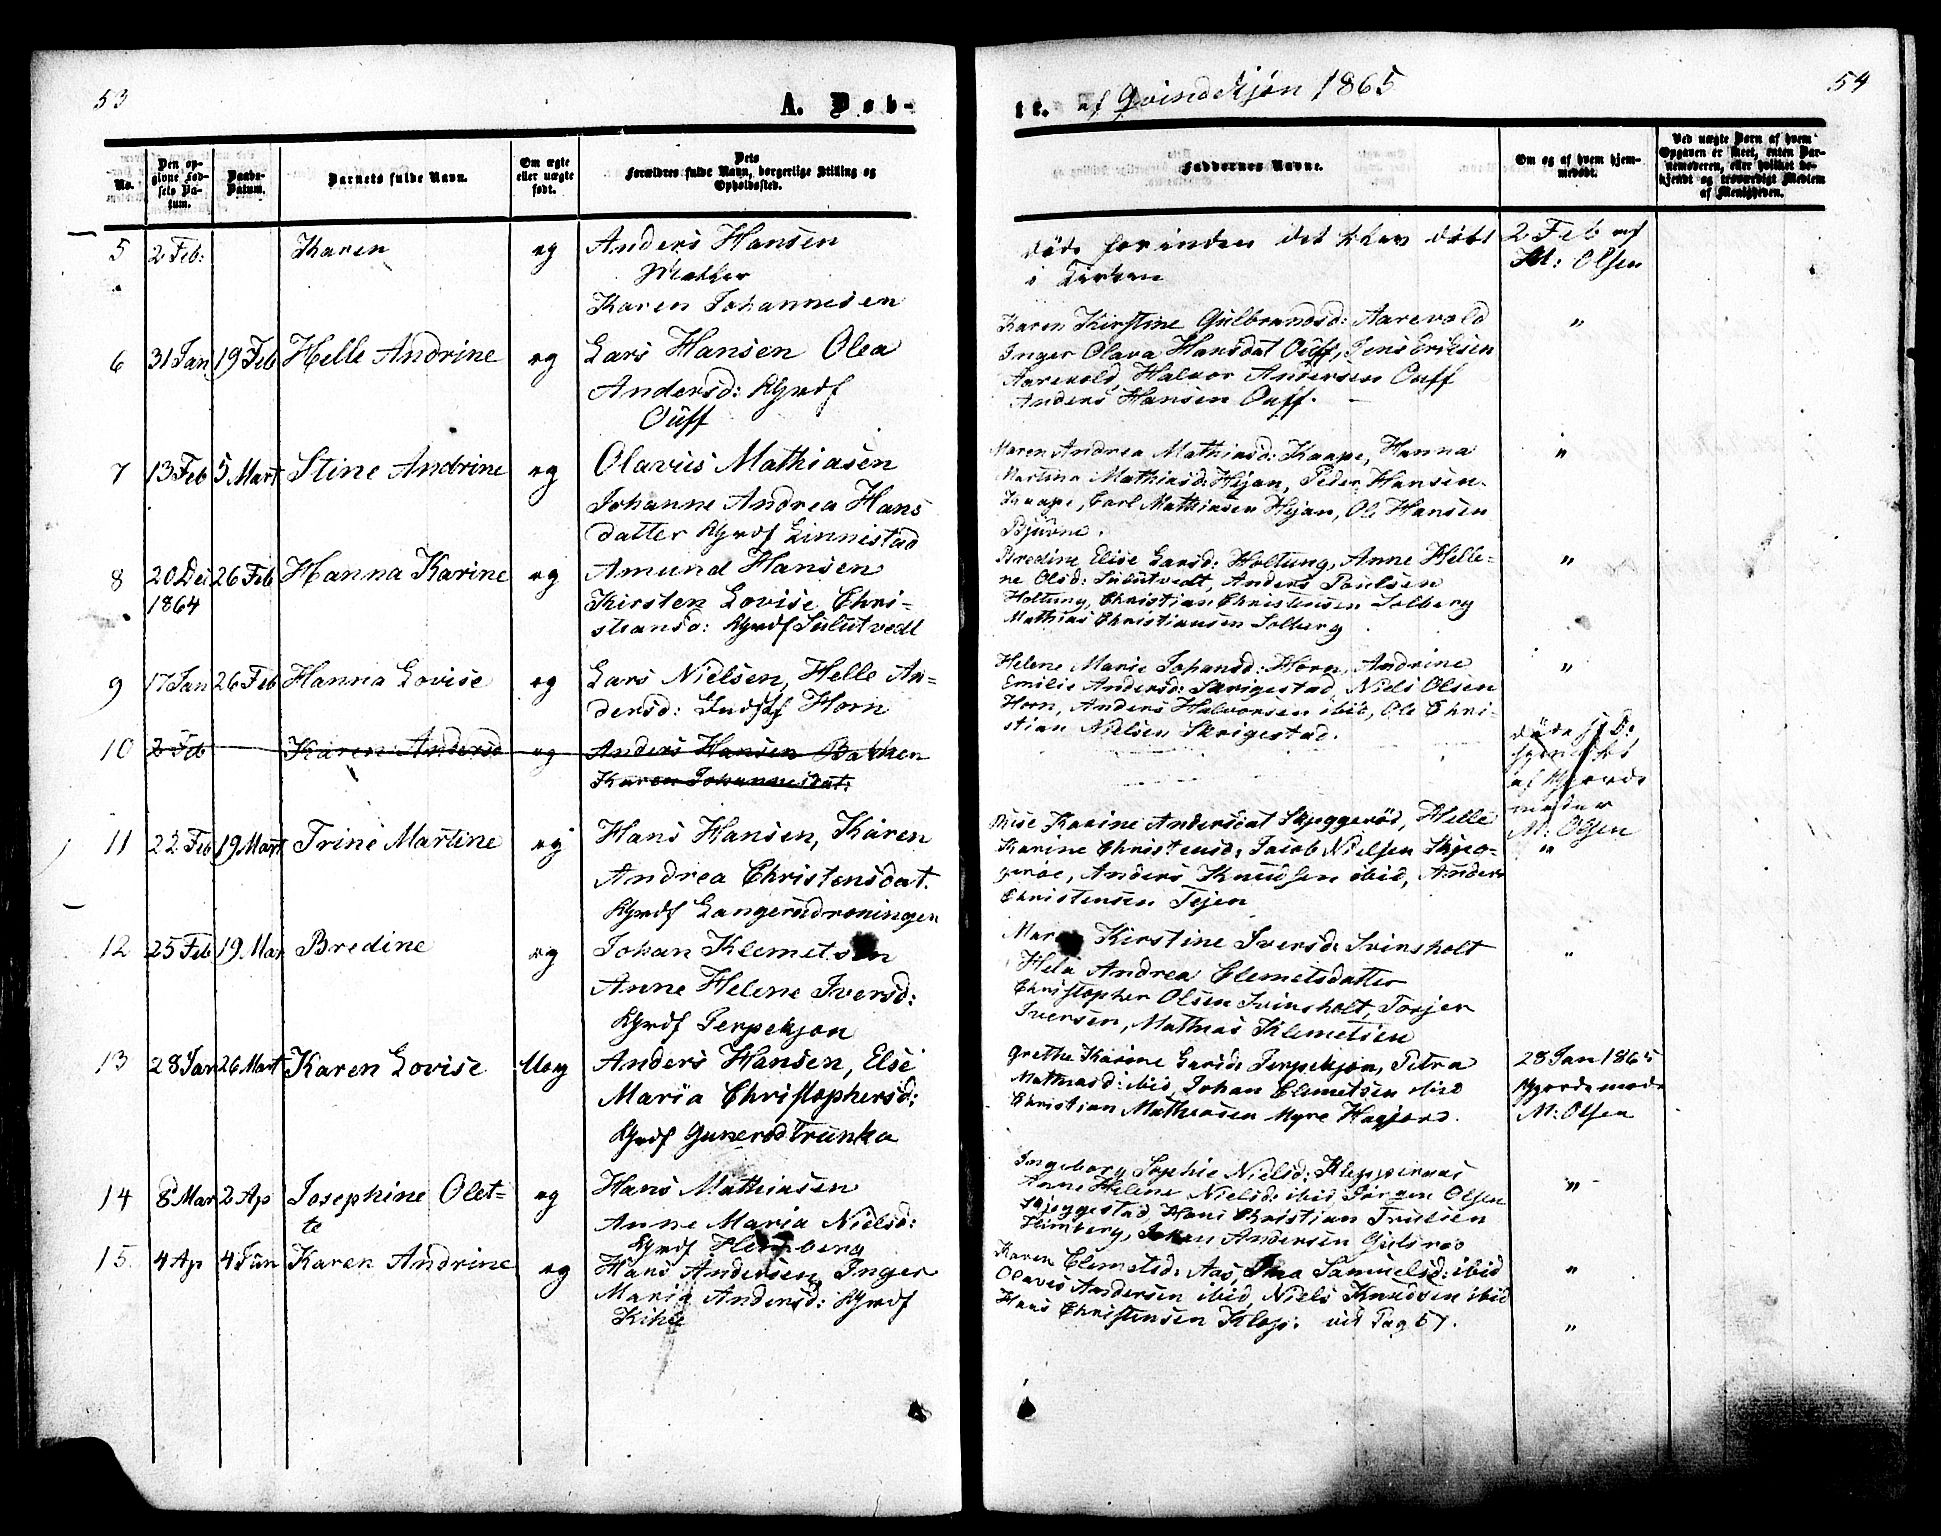 53
A. Døb-
te. af Qvindekjøn 1865
54
No.
Den op-
givne Fød-
sels Da-
tum.
Daabs-
Datum.
Barnets fulde Navn.
Om ægte
eller uægte
født.
Dets
Forældres fulde Navn, borgerlige Stilling og
Opholdssted.
Faddernes Navne.
Om og af hvem hjem-
medøbt.
Ved uægte Børn af hvem
Opgaven er skeet, enten Bar-
nemoderen, eller hvilket be-
kjendt og troværdigt Medlem
af Menigheden.
5 2 Feb: Karen eg Anders Hansen
Karen Johannesen
døde forinden det blev døbt
i Kirken
2 Feb af
M: Olsen
6 31 Jan 19 Feb Helle Andrine eg Lars Hansen Olea
Andersd: Gmdf
Ouff
Karen Kirstine Gulbrandsd: Aarevold
Inger Olava Hansdat Ouff, Jens Eriksen
Aarevold, Halvor Andersen Ouff
Anders Hansen Ouff.
"
7 13 Feb 5 Mart Stine Andrine eg Olavus Mathiasen
Johanne Andrea Hans
datter Gmdf Linnestad
Maren Andrea Mathiasd: Kaape, Hanna
Martina Mathiasd: Hejan, Peder Hansen
Kaape, Carl Mathiasen Hejan, Ole Hansen
Bjuvne.
"
8 20 Dec 26 Feb Hanna Karine eg Amund Hansen
1864
Kirsten Lovise Chri-
stiansd: Gmdf Sulutvedt
Bredine Elise Larsd: Holtung, Anne Helle-
ne Olsd: Sulutvedt, Anders Poulsen
Holtung, Christian Christensen Solberg
Mathias Christiansen Solberg
"
9 17 Jan 26 Feb Hanna Lovise eg Lars Nielsen, Helle An-
dersd: Horn
Helene Marie Johansd: Horn, Andrine
Emilie Andersd: Skrigestad, Niels Olsen
Horn, Anders Halvorsen ibid, Ole Chri-
stian Nielsen Skrigestad.
"
10 2 Feb Karen Andersd eg Anders Hansen Bakken
Karen Johannesdat:
døde
af Gjorde
moder
M: Olsen
11 22 Feb 19 Mart Trine Martine eg Hans Hansen, Karen
Andrea Christensdat.
Gmdf Langerudroningen
Karine Andersdat Skjeggerød, Helle
Karine Christensd: Jacob Nielsen Skjeg-
gerøe, Anders Knudsen ibid, Anders
Christensen Tejen
"
12 25 Feb 19 Mar Bredine eg Johan Klemetsen
Anne Helene Iversd:
Gmdf Jerpekjøn
Kirstine Iversd: Svinsholt
Hela Andrea Clemetsdatter
Christopher Olsen Svinsholt, Torjer
Iversen, Mathias Klemetsen
"
13 28 Jan 26 Mart Karen Lovise Ueg Anders Hansen, Else
Maria Christophersd:
Gmdf Gunerødtrunka
Grethe Karine Larsd: Jerpekjøn, Petra
Mathiasd: ibid, Johan Clemetsen ibid
Christian Mathiasen Myre Hagjord.
28 Jan 1865
Gjordemode
M: Olsen
14 8 Mar 2 Ap Josephine Olet-
te
eg Hans Mathiasen
Anne Maria Nielsd:
Gmdf Heimberg
Ingeborg Sophie Nielsd: Kleppernæs
Anne Helene Nielsd: ibid, Jørgen Olsen
Skjeggestad, Hans Christian Trulsen
Heimberg, Johan Andersen Gulsrød
"
15. 4 Ap 4 Jun Karen Andrine eg Hans Andersen, Inger
Maria Andersd: Gmdf
Kihle
Karen Clemetsd: Aas, Ina Samuelsd: ibid
Olavis Andersen ibid, Niels Knudsen ibid
Hans Christensen Klop: vid Pag 57.
"
"